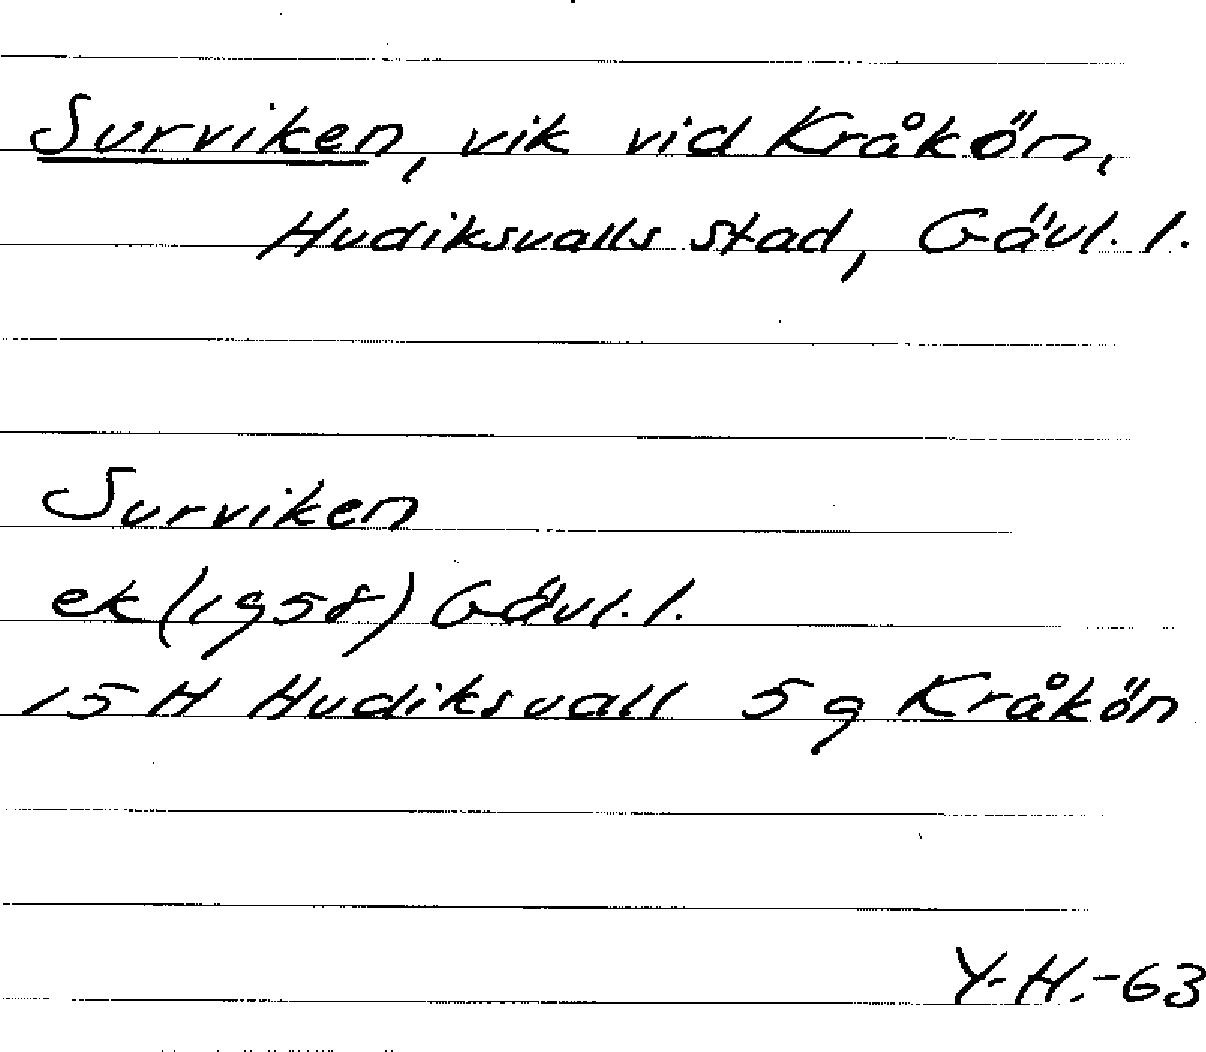 Surviken, vik vid Kråkön,
Hudiksvalls stad, Gävl. l.
Surviken
ek (1958) Gävl. l.
15 H Hudiksvall 5 g Kråkön
Y-H.-63